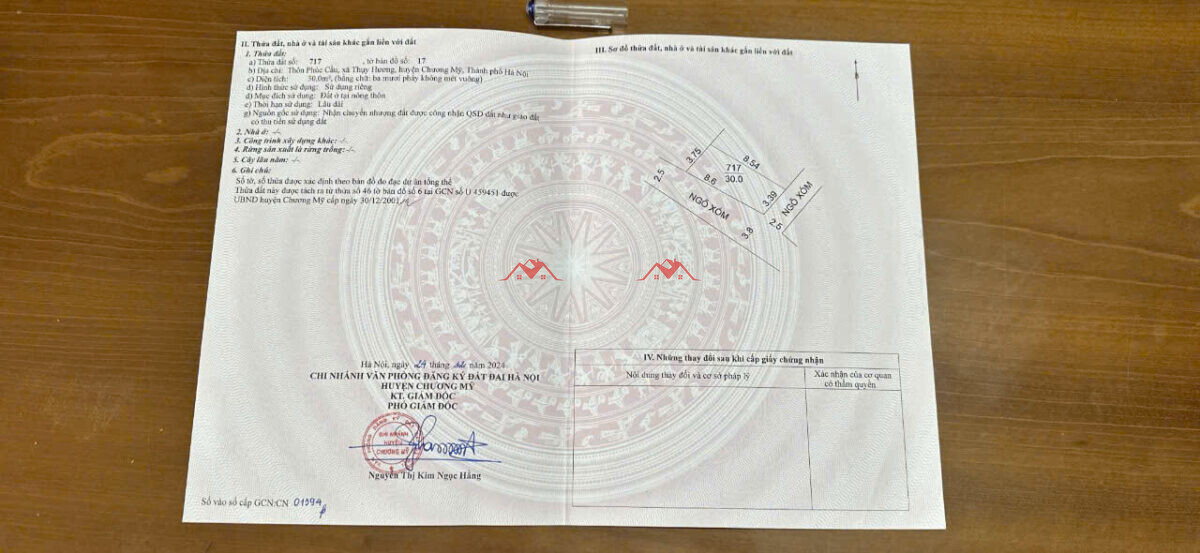 II. Thửa đất, nhà ở và tài sản khác gắn liền với đất
1. Thửa đất:
a) Thửa đất số: 717 , tờ bản đồ số: 17
b) Địa chỉ: Thôn Phúc Cầu, xã Thụy Hương, huyện Chương Mỹ, Thành phố Hà Nội
c) Diện tích: 30,0m², (bằng chữ: ba mươi phẩy không mét vuông)
d) Hình thức sử dụng: Sử dụng riêng
đ) Mục đích sử dụng: Đất ở tại nông thôn
e) Thời hạn sử dụng: Lâu dài
g) Nguồn gốc sử dụng: Nhận chuyển nhượng đất được công nhận QSD đất như giao đất
có thu tiền sử dụng đất
2. Nhà ở: -/-
3. Công trình xây dựng khác: -/-
4. Rừng sản xuất là rừng trồng: -/-
5. Cây lâu năm: -/-
6. Ghi chú:
Số tờ, số thửa được xác định theo bản đồ đo đạc dự án tổng thể
Thửa đất này được tách ra từ thửa số 46 tờ bản đồ số 6 tại GCN số U 459451 được
UBND huyện Chương Mỹ cấp ngày 30/12/2001
Hà Nội, ngày 24 tháng năm 2024
CHI NHÁNH VĂN PHÒNG ĐĂNG KÝ ĐẤT ĐAI HÀ NỘI
HUYỆN CHƯƠNG MỸ
KT. GIÁM ĐỐC
PHÓ GIÁM ĐỐC
CHI NHÁNH
HUYỆN
CHƯƠNG MỸ
Nguyễn Thị Kim Ngọc Hằng
Số vào sổ cấp GCN:CN
III. Sơ đồ thửa đất, nhà ở và tài sản khác gắn liền với đất
3.75
8.54
717
30.0
2.5
8.6
3.39
NGÕ XÓM
NGÕ XÓM
3.8
2.5
IV. Những thay đổi sau khi cấp giấy chứng nhận
Nội dung thay đổi và cơ sở pháp lý
Xác nhận của cơ quan
có thẩm quyền